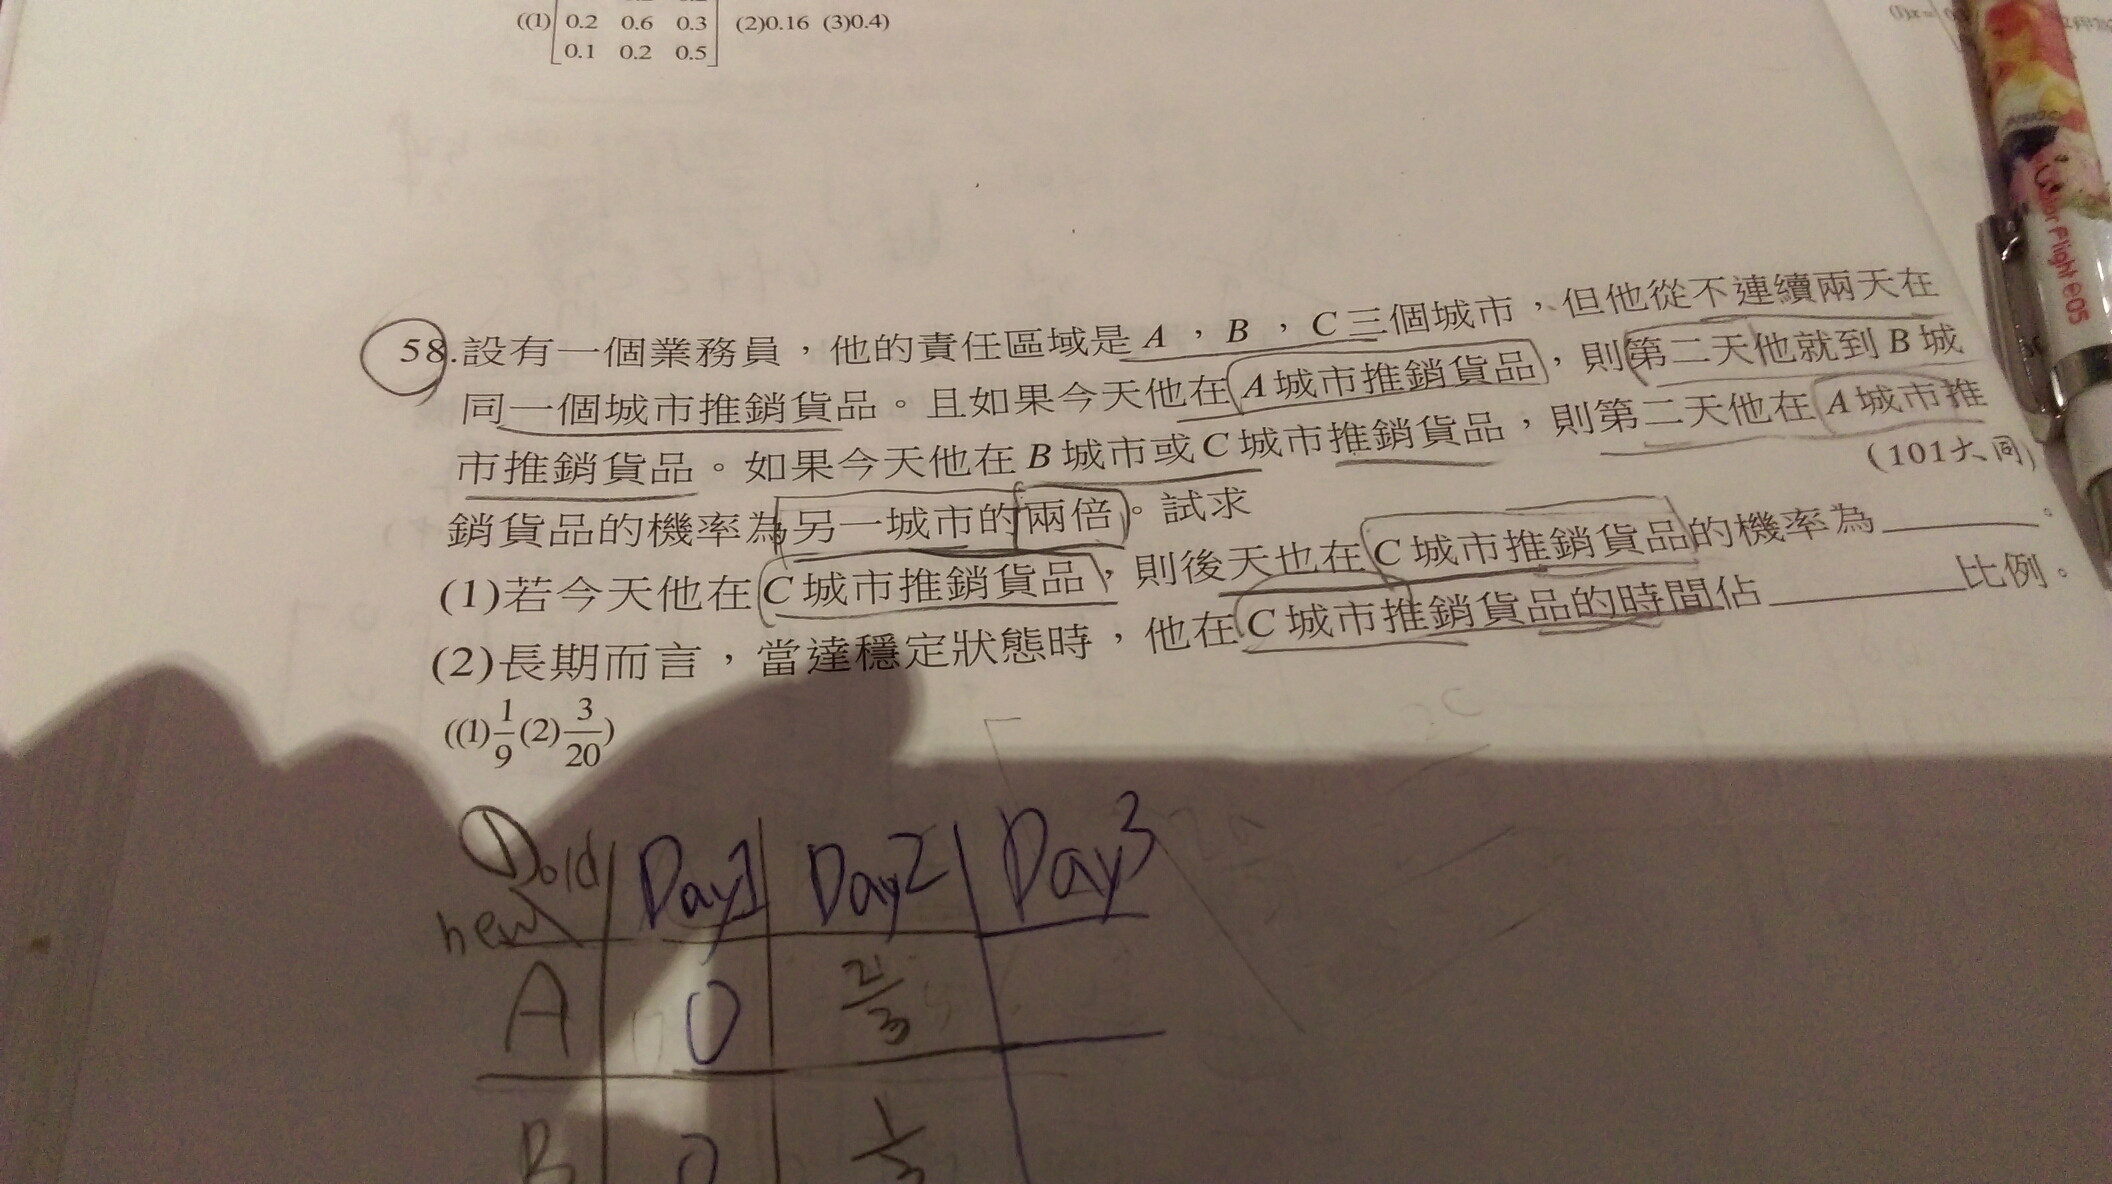 ((1) 0.2 0.6 0.3 (2)0.16 (3)0.4)
0.1 0.2 0.5
58.設有一個業務員，他的責任區域是 A，B，C 三個城市，但他從不連續兩天在
同一個城市推銷貨品。且如果今天他在 A 城市推銷貨品，則第二天他就到 B 城
市推銷貨品。如果今天他在 B 城市或 C 城市推銷貨品，則第二天他在 A 城市推
銷貨品的機率為另一城市的兩倍。試求
(101大同)
(1)若今天他在 C 城市推銷貨品，則後天也在 C 城市推銷貨品的機率為＿＿＿。
(2)長期而言，當達穩定狀態時，他在 C 城市推銷貨品的時間佔＿＿＿比例。
((1)1/9 (2)3/20)
① old Day1 Day2 Day3
new
A 0 2/3
B 0 1/3
Color Flight 05